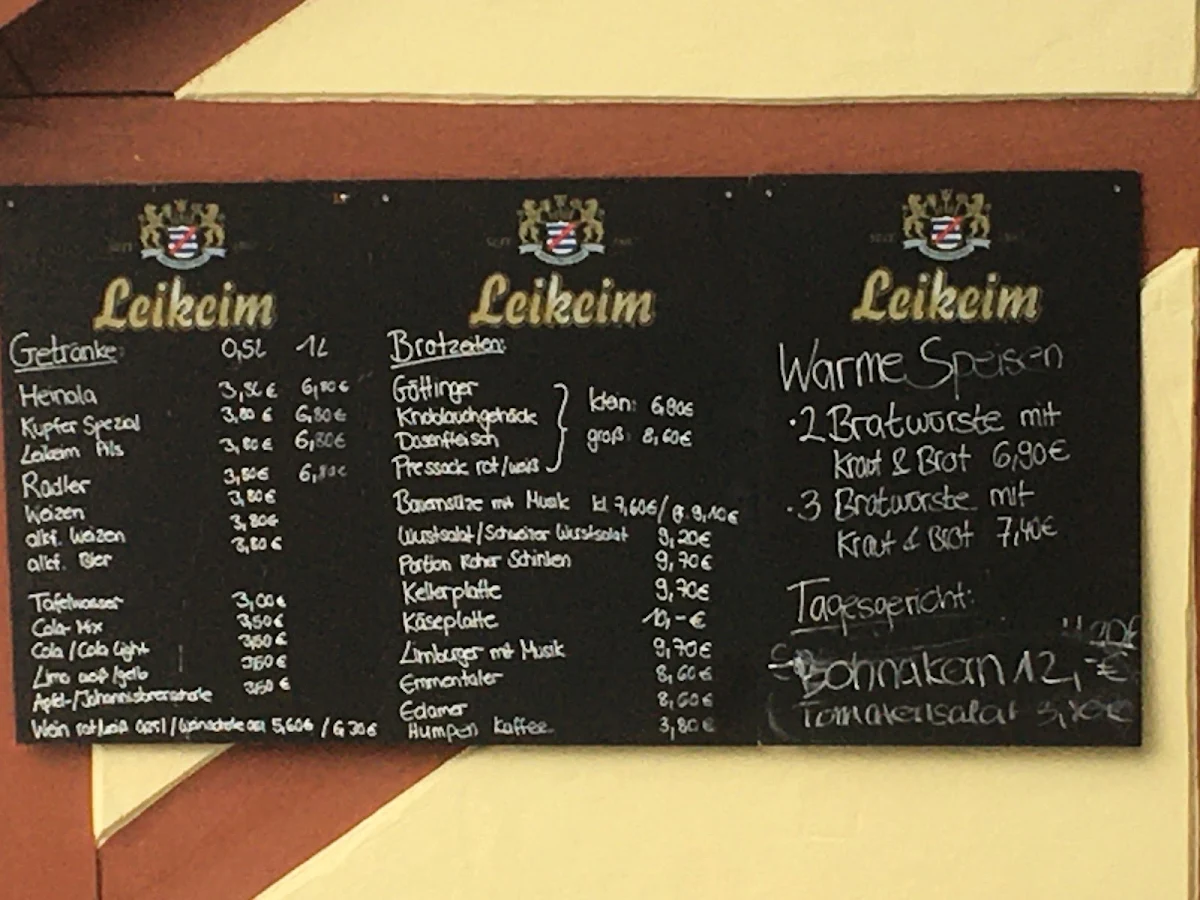 Leikeim
Getränke: 0,5L 1L
Heinala 3,80€ 6,80€
Kupfer Spezial 3,80€ 6,80€
Leikeim Pils 3,80€ 6,80€
Radler 3,80€ 6,80€
Weizen 3,80€
alkf. Weizen 3,80€
alkf. Bier 3,80€
Tafelwasser 3,00€
Cola-Mix 3,50€
Cola/Cola light 3,50€
Limo weiß/gelb 3,50€
Apfel-/Johannisbeerschorle 3,50€
Wein rot/weiß /Weinschorle 5,60€ / 6,70€
Leikeim
Brotzeiten:
Göttinger
Knoblauchgehäck
Dosenfleisch
Pressack rot/weiß
klein: 6,90€
groß: 8,60€
Bauernsülze mit Musik kl 7,60€/ g. 9,10€
Wurstsalat/Schweizer Wurstsalat 9,20€
Portion Roher Schinken 9,70€
Kellerplatte 9,70€
Käseplatte 10,-€
Limburger mit Musik 9,70€
Emmentaler 8,60€
Edamer 8,60€
Humpen Kaffee 3,80€
Leikeim
Warme Speisen
·2 Bratwürste mit
Kraut & Brot 6,90€
·3 Bratwürste mit
Kraut & Brot 7,40€
Tagesgericht:
Bohnakern 12,-€
Tomatensalat